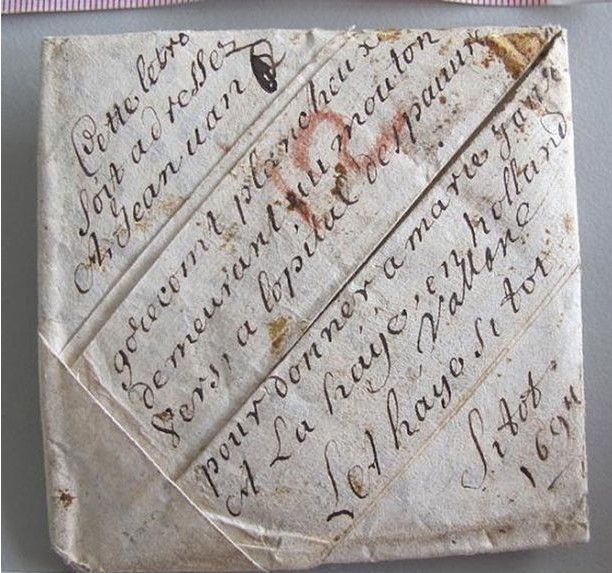 Cette letre
soit adressez
A Jean uan
gorecomt plancheux
demeurant au mouton
vers, a lopital des pauure
pour donner a marie
A La haÿe, en holland
Vallone
La haye Si tot
Sitot